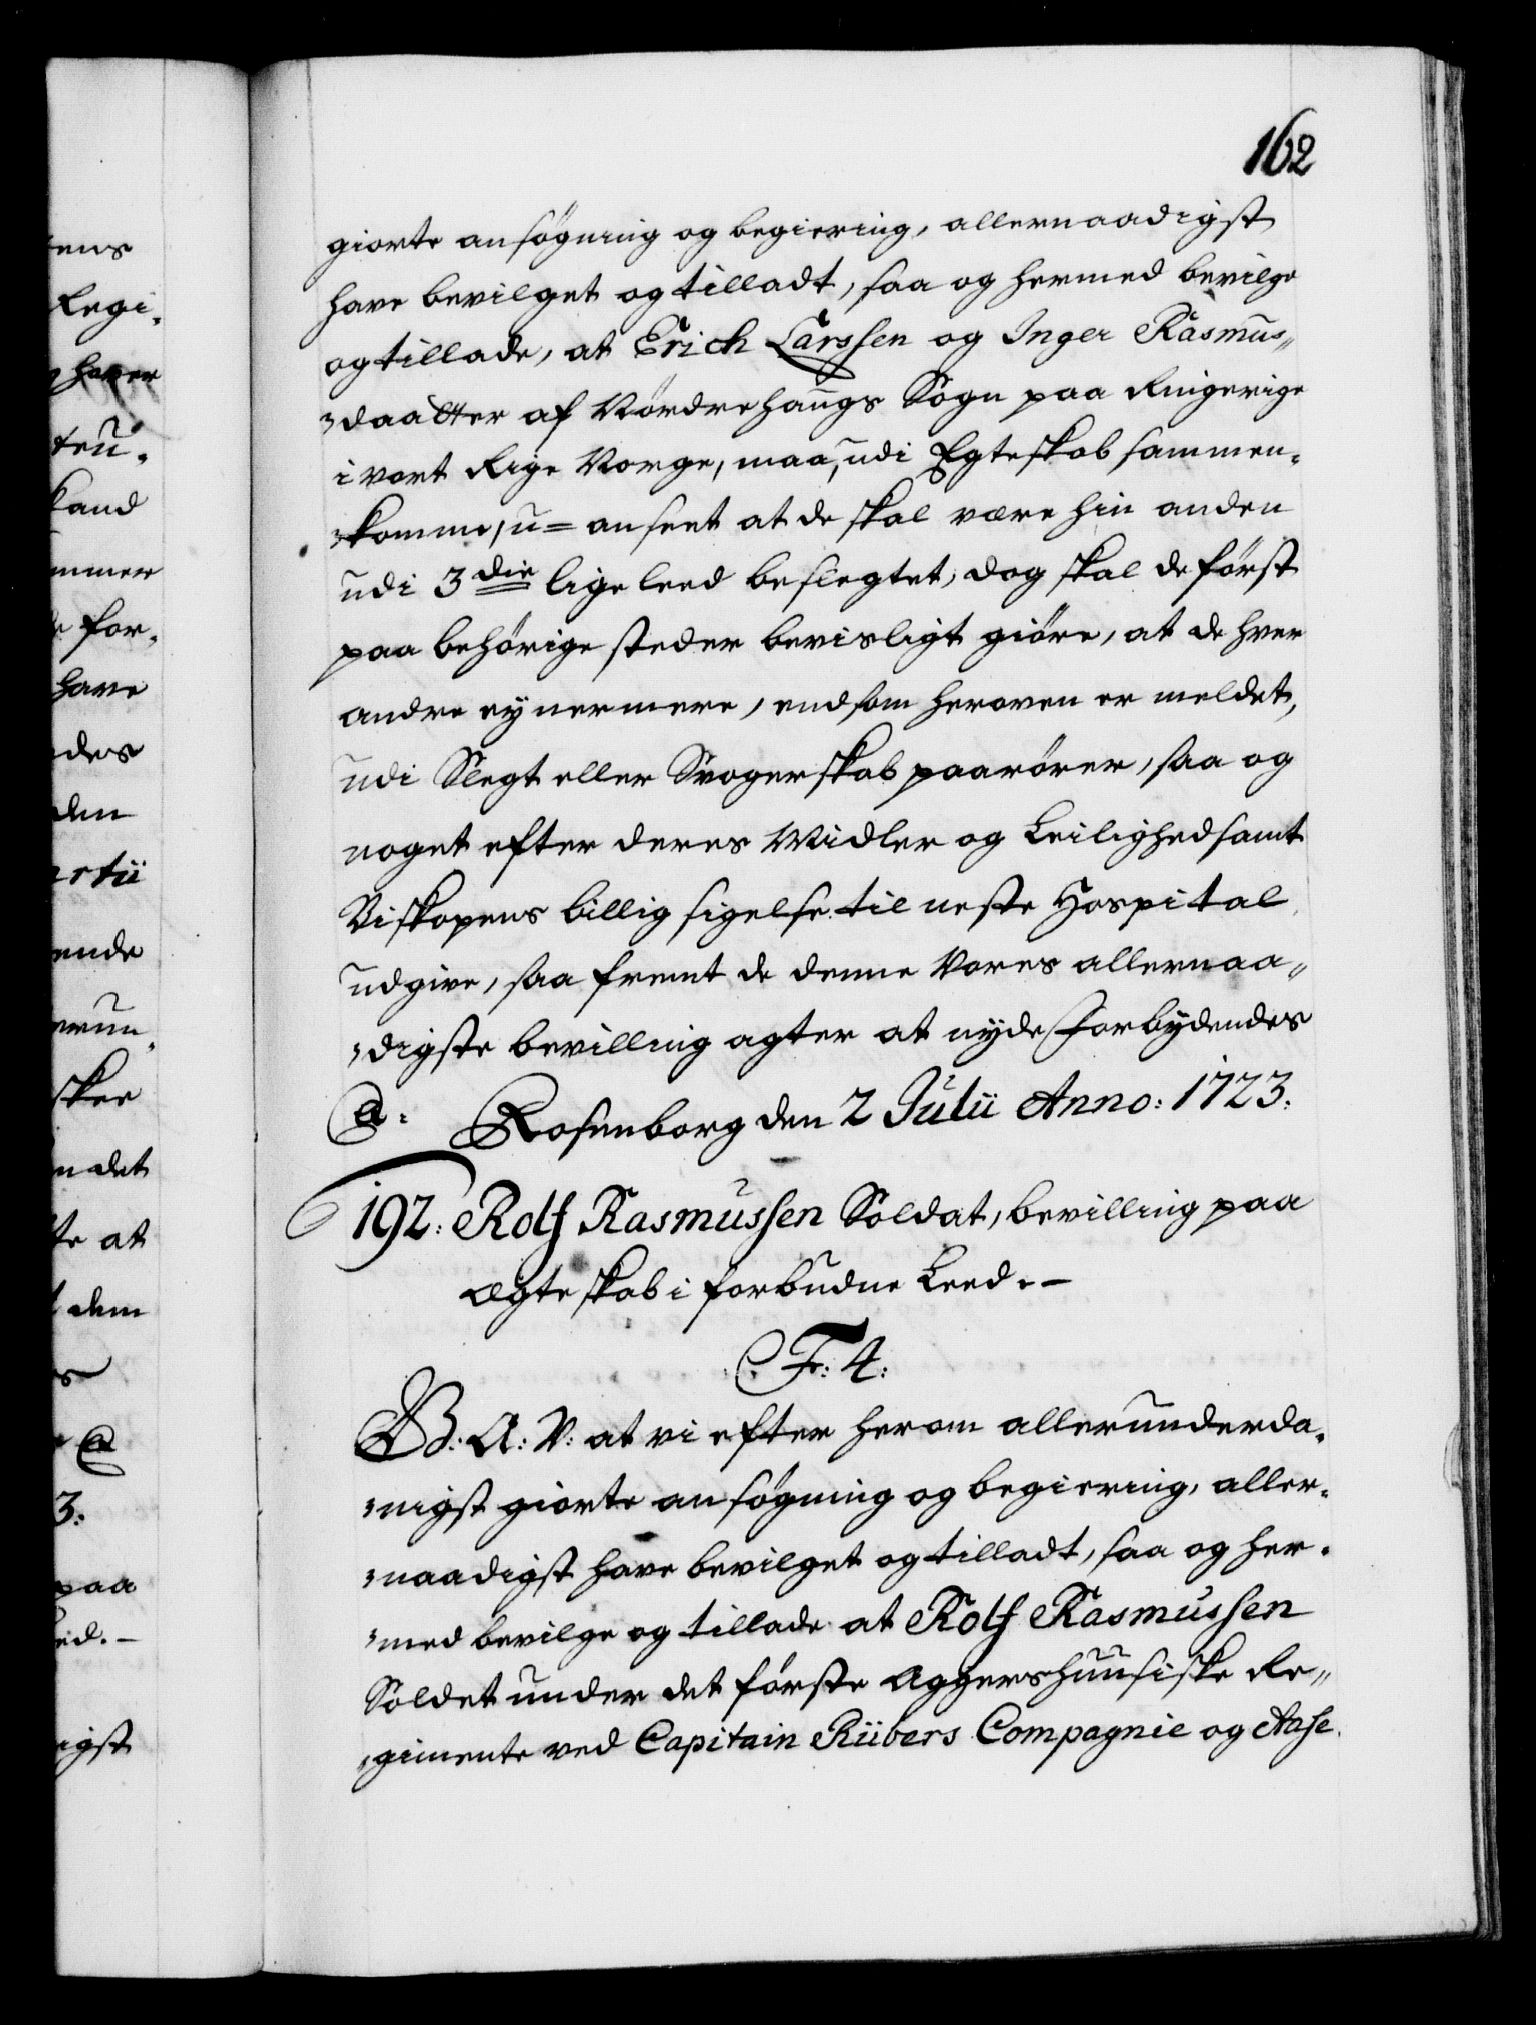 162
giorte ansögning og begiering, allernaadigst
have bevilget og tilladt, saa og hermed bevilge
og tillade, at Erich Larssen og Inger Rasmus„
„daatter af Nordrehaugs Sogn paa Ringerige
i vort Rige Norge, maa, udi Egteskab sammen„
„komme, u= anseet at de skal være hin anden
udi 3die lige leed beslegtet, dog skal de först
paa behörige steder bevisligt giöre, at de hver
andre ey nermere, end som heroven er meldet,
udi Slegt eller Svogerskab paarörer, saa og
noget efter deres Midler og Leilighed samt
Biskopens billig sigelse til neste Hospital
udgive, saa fremt de denne Vores allernaa„
„digste bevilling agter at nyde Forbydendes
Rosenborg den 2 Julii Anno: 1723:
192: Rolf Rasmussen Soldat, bevilling paa
Ægteskab i forbudne Leed.–
F: 4:
G: A: V: at vi efter herom allerunderda„
„nigst giorte ansögning og begiering, aller„
„naadigst have bevilget og tilladt, saa og her„
„med bevilge og tillade at Rolf Rasmussen
Soldet under det förste Aggershuusiske Re„
„gimente ved Capitain Rübers Compagnie og Aase
ens
Regi„
haver
teu„
kand
mmer
for„
have
des
den
rtii
ende
erun„
skee
n det
te at
dem
3:
paa
ed.–
igst